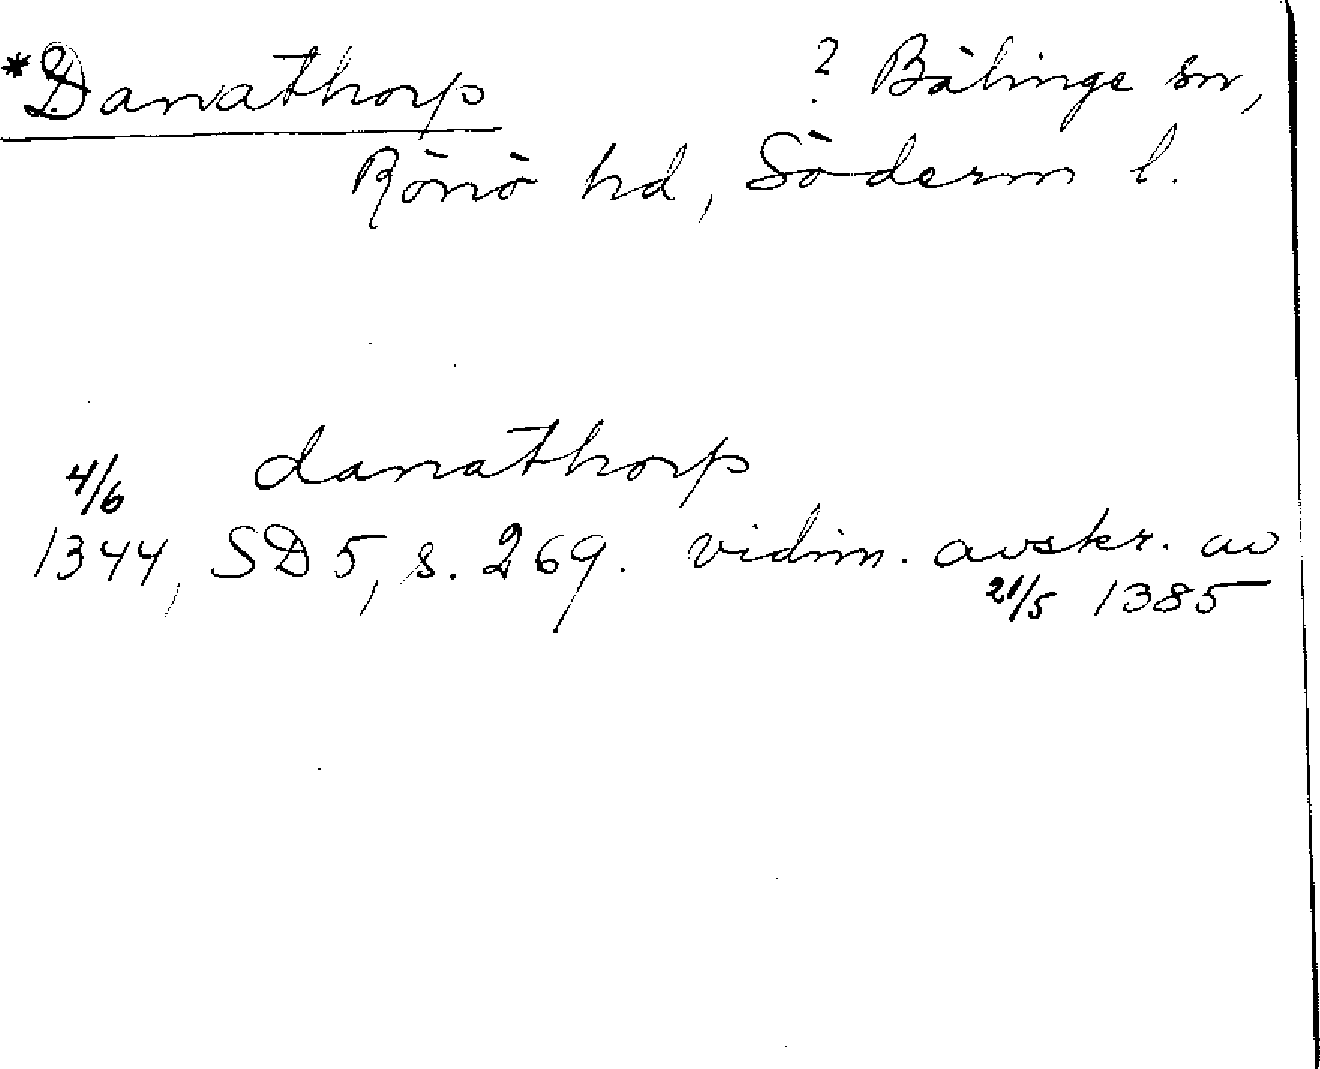 *Danathorp ? Bälinge sn,
Rönö hd, Söderm l.
danathorp
4/6
1344, SD 5, s. 269. vidim. avskr. av
21/5 1385